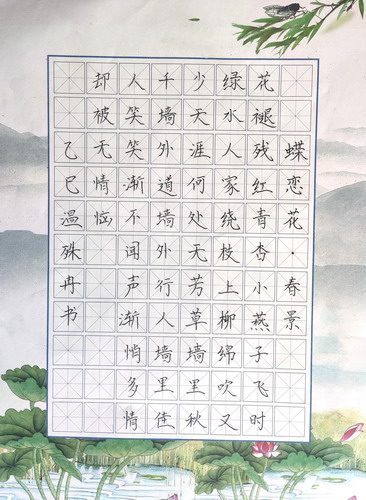 蝶恋花·春景
花褪残红青杏小燕子飞时
绿水人家绕枝上柳绵吹又
少天涯何处无芳草墙里秋
千墙外道墙外行人墙里佳
人笑笑渐不闻声渐悄多情
却被无情恼
乙巳温殊冉书